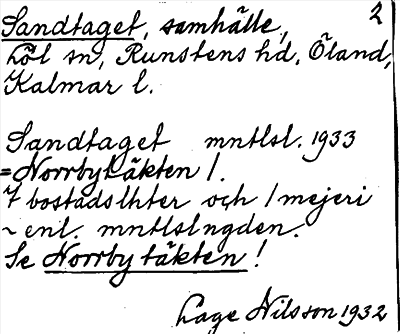 Sandtaget, samhälle, 2
Löt sn, Runstens hd, Öland,
Kalmar l.
Sandtaget mntlsl. 1933
= Norrbytäkten 1.
7 bostadslhter och 1 mejeri
~ enl. mntlslngden.
Se Norrbytäkten!
Lage Nilsson 1932